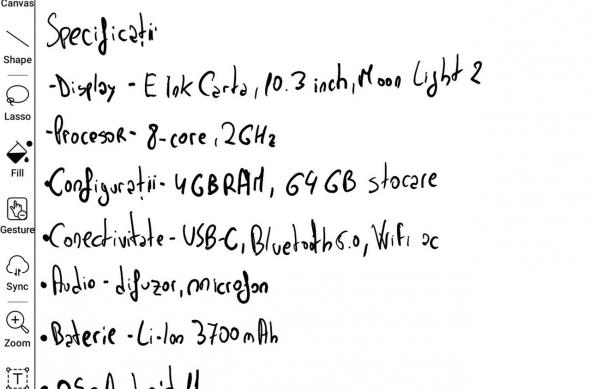 Canvas
Shape
Lasso
Fill
Gesture
Sync
Zoom
Specificații
-Display - E Ink Carta, 10.3 inch, Moon Light 2
-Procesor - 8-core, 2GHz
•Configurații - 4GB RAM, 64 GB stocare
•Conectivitate - USB-C, Bluetooth 5.0, Wifi ac
•Audio - difuzor, microfon
•Baterie - Li-Ion 3700 mAh